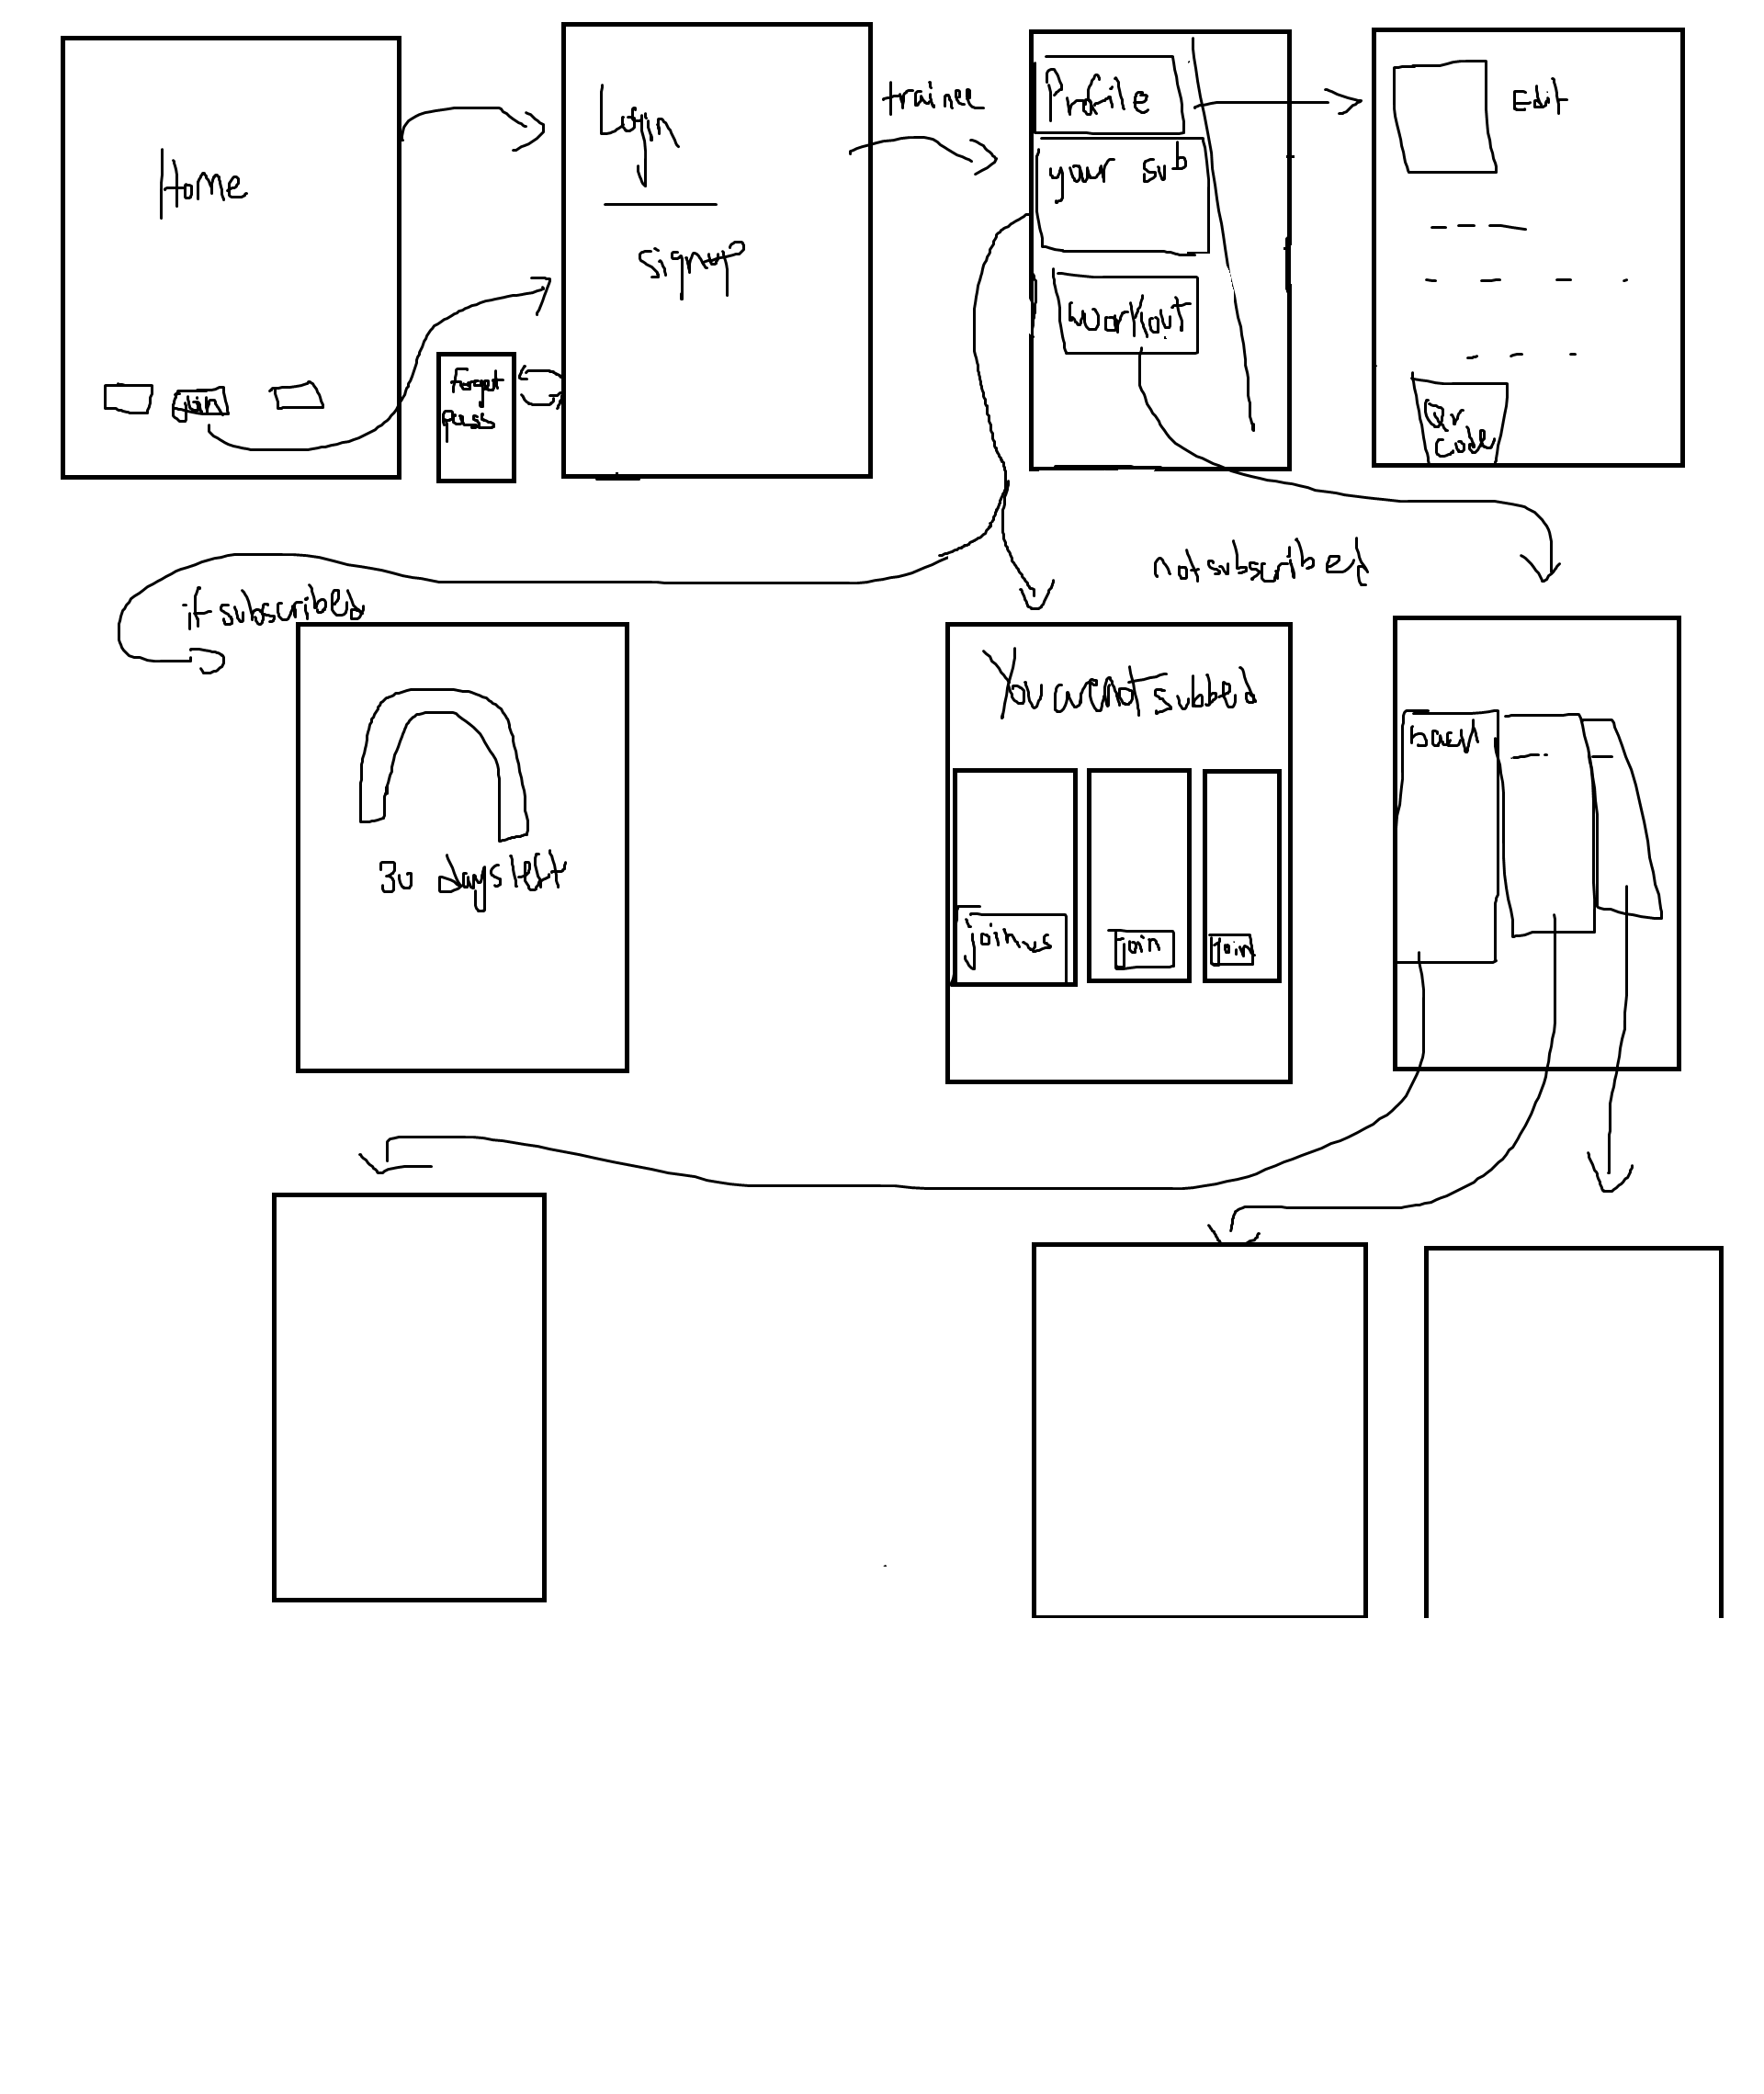 Home
join
Login
signup
forget
pass
trainee
Profile
your sub
workout
Edit
Qr
code
if subscribed
not subscribed
30 days left
You are not subbed
join us
join
join
back